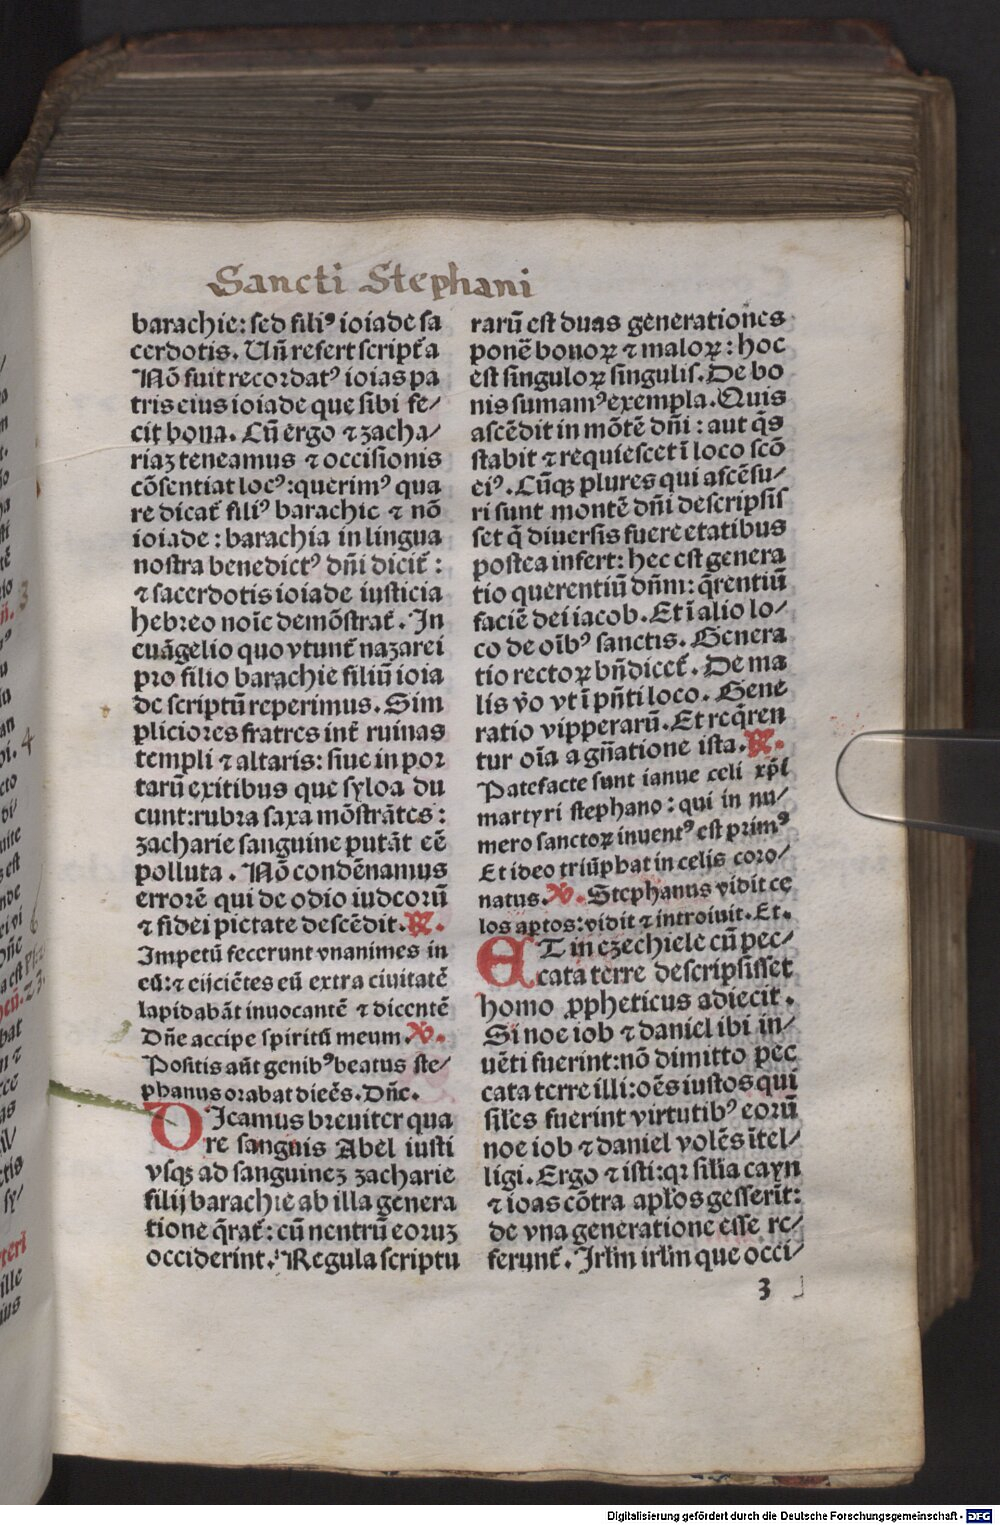 Sancti Stephani
barachie: sed filiꝰ ioiade sa
cerdotis. Uñ refert script̃a
Nõ fuit recordatꝰ ioias pa
tris eius ioiade que sibi fe/
cit bona. Cũ ergo ⁊ zacha/
riaz teneamus ⁊ occisionis
cõsentiat locꝰ: querimꝰ qua
re dicat̃ filiꝰ barachie ⁊ nõ
ioiade: barachia in lingua
nostra benedictꝰ dñi dicit̃:
⁊ sacerdotis ioiade iusticia
hebreo noĩe demõstrat̃. In
euãgelio quo vtunt̃ nazarei
pro filio barachie filiũ ioia
de scriptũ reperimus. Sim
pliciores fratres int̃ ruinas
templi ⁊ altaris: siue in por
tarũ exitibus que syloa du
cunt: rubra saxa mõstrãtes:
zacharie sanguine putãt eẽ
polluta. Nõ condẽnamus
errorẽ qui de odio iudeorũ
⁊ fidei pietate descẽdit. ℟.
Impetũ fecerunt vnanimes in
eũ: ⁊ eijciẽtes eũ extra ciuitatẽ
lapidabãt inuocantẽ ⁊ dicentẽ
Dñe accipe spiritũ meum. ℣.
Positis aũt genibꝰ beatus ste/
phanus orabat dicẽs. Dñe.
DIcamus breuiter qua
re sanguis Abel iusti
vsqꝫ ad sanguinez zacharie
filij barachie ab illa genera
tione q̃rat̃: cũ neutrũ eoruz
occiderint. Regula scriptu
rarũ est duas generationes
ponẽ bonoꝝ ⁊ maloꝝ: hoc
est singuloꝝ singulis. De bo
nis sumamꝰ exempla. Quis
ascẽdit in mõtẽ dñi: aut q̃s
stabit ⁊ requiescet ĩ loco scõ
eiꝰ. Cũqꝫ plures qui ascẽsu/
ri sunt montẽ dñi descripsis
set q̃ diuersis fuere etatibus
postea infert: hec est genera
tio querentiũ dñm: q̃rentiũ
faciẽ dei iacob. Et ĩ alio lo/
co de oĩbꝰ sanctis. Genera
tio rectoꝝ bñdicet̃. De ma
lis v̊o vt ĩ pñti loco. Gene
ratio vipperarũ. Et req̃ren
tur oĩa a gñatione ista. ℟.
Patefacte sunt ianue celi xp̃i
martyri stephano: qui in nu/
mero sanctoꝝ inuentꝰ est primꝰ
Et ideo triũphat in celis coro/
natus. ℣. Stephanus vidit ce
los aptos: vidit ⁊ introiuit. Et.
ET in ezechiele cũ pec/
cata terre descripsisset
homo ꝓpheticus adiecit.
Si noe iob ⁊ daniel ibi in/
uẽti fuerint: nõ dimitto pec
cata terre illi: oẽs iustos qui
sil̃es fuerint virtutibꝰ eorũ
noe iob ⁊ daniel volẽs ĩtel/
ligi. Ergo ⁊ isti: qꝛ sil̃ia cayn
⁊ ioas cõtra ap̃los gesserĩt:
de vna generatione esse re/
ferunt̃. Irl̃m irl̃m que occi/
3
Digitalisierung gefördert durch die Deutsche Forschungsgemeinschaft - DFG